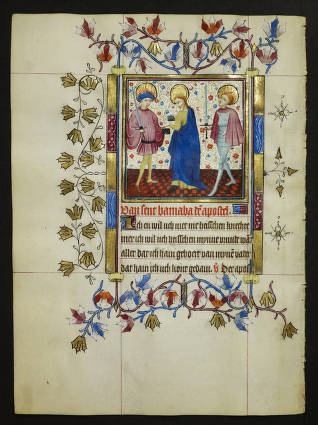 Van sent barnaba dē apostel.
Ich en wil uch niet me heisschen knechte
mer ich wil uch heisschen mynne vrunde wāt
allet dat ich hain gehoirt van mynē vader
dat hain ich uch kont gedain. Der apostel